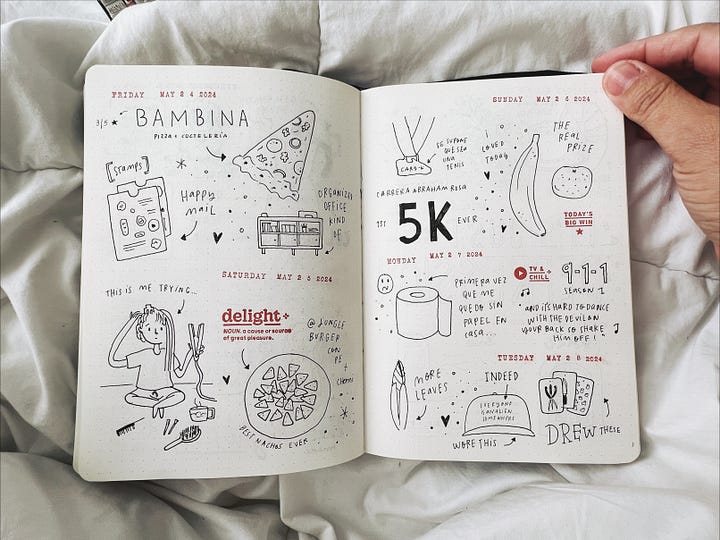 FRIDAY MAY 24 2024
3/5 ★
BAMBINA
PIZZA + COCTELERÍA
[STAMPS]
HAPPY
MAIL
ORGANIZED
OFFICE
KIND
OF
SATURDAY MAY 25 2024
THIS IS ME TRYING...
delight+
NOUN. a cause or source
of great pleasure.
@ JUNGLE
BURGER
CON
PE
+
CHERRY
BEST NACHOS EVER
SUNDAY MAY 26 2024
SE SUPONE
QUE SEA
UNA
TENIS
I
LOVED
TODAY
THE
REAL
PRIZE
CARRERA ABRAHAM ROSA
1ST 5K EVER
TODAY'S
BIG WIN
MONDAY MAY 27 2024
PRIMERA VEZ
QUE ME
QUEDO SIN
PAPEL EN
CASA...
TV &
CHILL+
9-1-1
SEASON 1
AND IT'S HARD TO DANCE
WITH THE DEVIL ON
YOUR BACK SO SHAKE
HIM OFF!
TUESDAY MAY 28 2024
MORE
LEAVES
INDEED
EVERYONE
IS AN ALIEN
SOMEWHERE
WORE THIS
DREW THESE